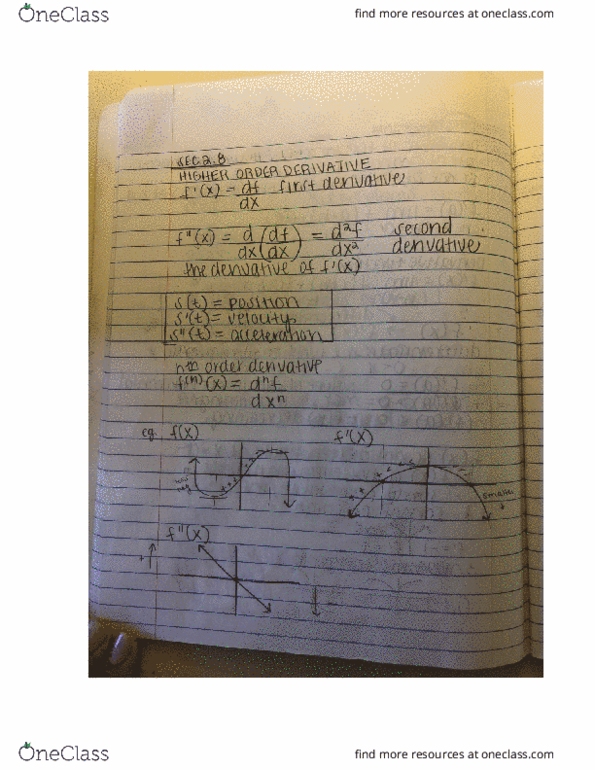 OneClass
find more resources at oneclass.com
SEC 2.8
HIGHER ORDER DERIVATIVE
f'(x) = df/dx first derivative
f"(x) = d/dx (df/dx) = d²f/dx² second derivative
the derivative of f'(x)
s(t) = position
s'(t) = velocity
s"(t) = acceleration
nth order derivative
f⁽ⁿ⁾(x) = dⁿf/dxⁿ
eg. f(x)
f'(x)
f"(x)
OneClass
find more resources at oneclass.com